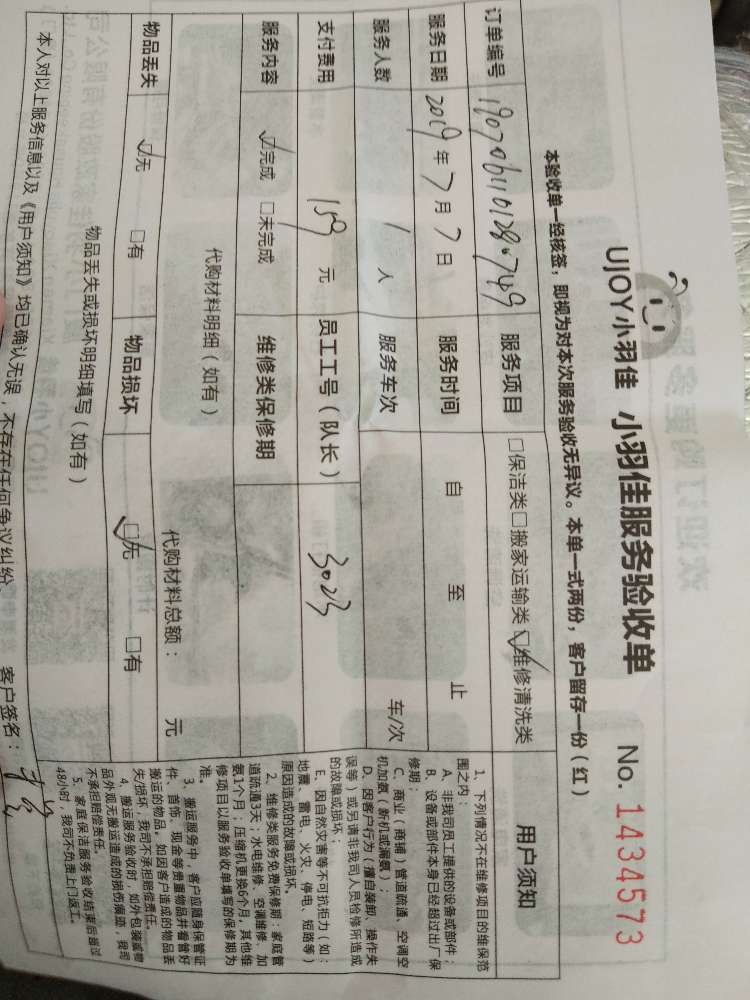 UJOY小羽佳 小羽佳服务验收单 No. 1434573
本验收单一经核签，即视为对本次服务验收无异议。本单一式两份，客户留存一份（红）
订单编号 服务项目 □保洁类□搬家运输类☑维修清洗类
服务日期 2019年7月7日 服务时间 自 至 止
服务人数 1人 服务车次 车/次
支付费用 159元 员工工号（队长） 3023
服务内容 ☑完成 □未完成 维修类保修期
代购材料明细（如有） 代购材料总额： 元
物品丢失 ☑无 □有 物品损坏 ☑无 □有
物品丢失或损坏明细填写（如有）
本人对以上服务信息以及《用户须知》均已确认无误，不存在任何争议纠纷。 客户签名：
用户须知
1、下列情况不在维修项目的维保范
围之内：
A、非我司员工提供的设备或部件；
B、设备或部件本身已经超过出厂保
修期；
C、商业（商铺）管道疏通、空调空
机加氨（新机或漏氨）；
D、因客户行为（擅自装卸、操作失
误等）或另请非我司人员检修所造成
的故障或损坏；
E、因自然灾害等不可抗拒力（如：
地震、雷电、火灾、停电、短路等）
原因造成的故障或损坏。
2、维修类服务免费保修期：家庭管
道疏通3天；水电维修、空调维修、加
氨1个月；压缩机更换6个月，其他维
修项目以服务验收单填写的保修期为
准。
3、搬运服务中，客户应随身保管证
件、首饰、现金等贵重物品并看管好
搬运的物品。如因客户造成的物品丢
失/损坏，我司不承担赔偿责任。
4、搬运服务验收时，如外包装或物
品外观无搬运造成的损伤痕迹，我司
不承担赔偿责任。
5、家庭保洁服务验收结束后超过
48小时，我司不负责上门返工。